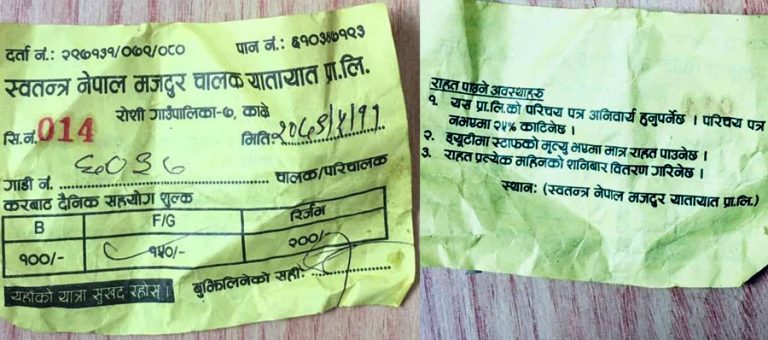 दर्ता नं.: २९७१३१/०७९/०८० पान नं.: ६१०३४७१२३
स्वतन्त्र नेपाल मजदुर चालक यातायात प्रा.लि.
रोशी गाउँपालिका-७, काभ्रे
सि.नं. 014 मिति:
गाडी नं. ६०३७ चालक/परिचालक
करबाट दैनिक सहयोग शुल्क
B F/G रिर्जभ
१००/- १५०/- २००/-
यहाँको यात्रा सुखद रहोस् । बुझिलिनेको सही:
राहत पाउने अवस्थाहरु
१. यस प्रा.लि.को परिचय पत्र अनिवार्य हुनुपर्नेछ । परिचय पत्र
नभएमा २५% काटिनेछ ।
२. ड्युटीमा स्टाफको मृत्यु भएमा मात्र राहत पाउनेछ ।
३. राहत प्रत्येक महिनको शनिबार वितरण गरिनेछ ।
स्थान: (स्वतन्त्र नेपाल मजदुर यातायात प्रा.लि.)